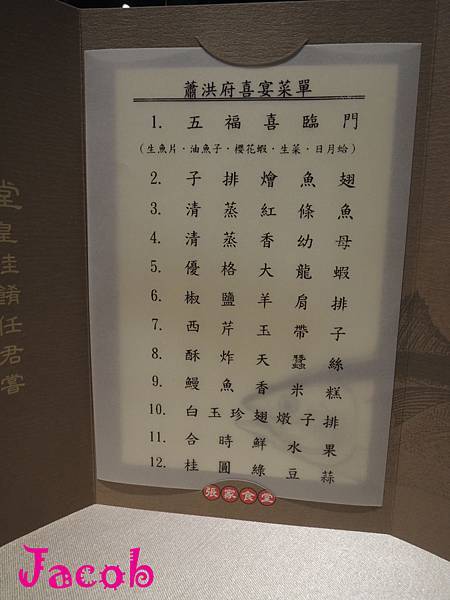 蕭洪府喜宴菜單
1. 五福喜臨門
(生魚片·油魚子·櫻花蝦·生菜·日月蛤)
2. 子排燴魚翅
3. 清蒸紅條魚
4. 清蒸香幼母
5. 優格大龍蝦
6. 椒鹽羊肩排
7. 西芹玉帶子
8. 酥炸天蠶絲
9. 鰻魚香米糕
10. 白玉珍翅燉子排
11. 合時鮮水果
12. 桂圓綠豆蒜
張家食堂
堂皇佳餚任君嘗
Jacob